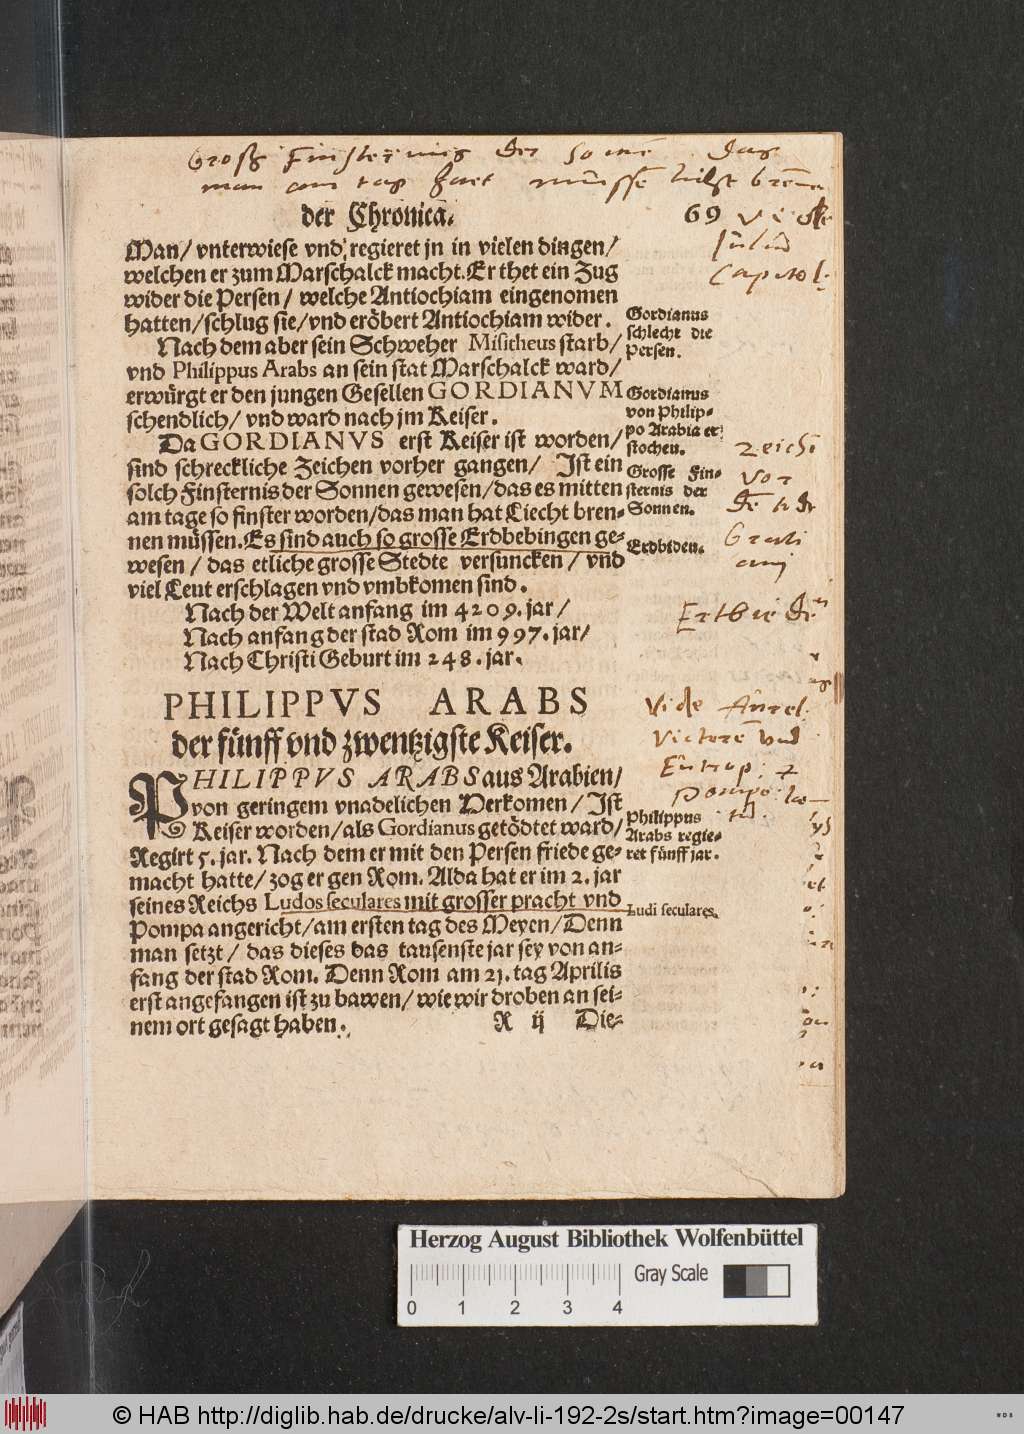 Groß Finsternis der Sonne das
man am tag hat müssen
der Chronica. 69
Man/ vnterwiese vnd regieret jn in vielen dingen/
welchen er zum Marschalck macht. Er thet ein Zug
wider die Persen/ welche Antiochiam eingenomen
hatten/ schlug sie/ vnd eröbert Antiochiam wider.
Nach dem aber sein Schweher Misitheus starb/
vnd Philippus Arabs an sein stat Marschalck ward/
erwürgt er den jungen Gesellen GORDIANVM
schendlich/ vnd ward nach jm Keiser.
Da GORDIANVS erst Keiser ist worden/
sind schreckliche Zeichen vorher gangen/ Ist ein
solch Finsternis der Sonnen gewesen/ das es mitten
am tage so finster worden/ das man hat Liecht bren-
nen müssen. Es sind auch so grosse Erdbebingen ge-
wesen/ das etliche grosse Stedte versuncken/ vnd
viel Leut erschlagen vnd vmbkomen sind.
Nach der Welt anfang im 4209. jar/
Nach anfang der stad Rom im 997. jar/
Nach Christi Geburt im 248. jar.
PHILIPPVS ARABS
der fünff vnd zwentzigste Keiser.
PHILIPPVS ARABS aus Arabien/
von geringem vnadelichen Herkomen/ Ist
Keiser worden/ als Gordianus getödtet ward/
Regirt 5. jar. Nach dem er mit den Persen friede ge-
macht hatte/ zog er gen Rom. Alda hat er im 2. jar
seines Reichs Ludos seculares mit grosser pracht vnd
Pompa angericht/ am ersten tag des Meyen/ Denn
man setzt/ das dieses das tausenste jar sey von an-
fang der stad Rom. Denn Rom am 21. tag Aprilis
erst angefangen ist zu bawen/ wie wir droben an sei-
nem ort gesagt haben.
R ij Die-
Capitol.
Gordianus
schlecht die
Persen.
Gordianus
von Philip-
po Arabia er-
stochen.
Grosse Fin-
sternis der
Sonnen.
Erdbiden.
zeich
vor
Ertbiede
Vide Aurel.
Victorē vnd
Eutrop:
Pompo:
Philippus
Arabs regie-
ret fünff jar.
Ludi seculares.
Herzog August Bibliothek Wolfenbüttel
Gray Scale
0 1 2 3 4
© HAB http://diglib.hab.de/drucke/alv-li-192-2s/start.htm?image=00147